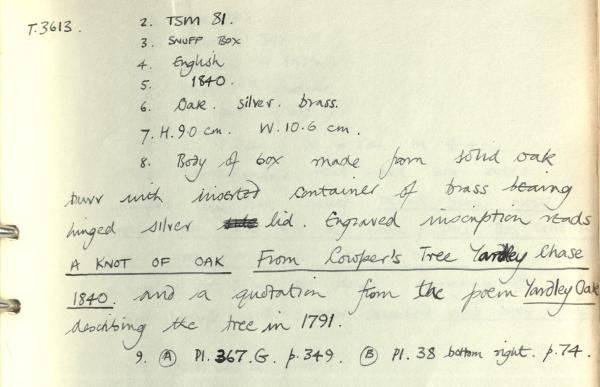 T.3613. 2. TSM 81.
3. SNUFF BOX
4. English
5. 1840.
6. Oak. silver. brass.
7. H. 9.0 cm. W. 10.6 cm.
8. Body of box made from solid oak
burr with inserted container of brass bearing
hinged silver lid. Engraved inscription reads
A KNOT OF OAK From Cowper's Tree Yardley Chase
1840. and a quotation from the poem Yardley Oak
describing the tree in 1791.
9. (A) Pl. 367.G. p.349. (B) Pl. 38 bottom right. p.74.